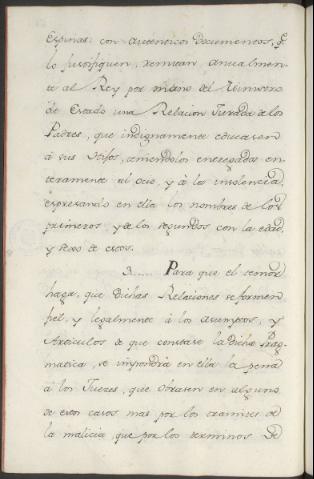 Espinas: con autenticos Documentos, q.e
lo justifiquen, remitan anualmen-
te al Rey por mano del Ministro
de Estado una Relacion Jurada de los
Padres, que indignamente educasen
á sus Hijos, teniendolos entregados en-
teramente al ocio, y á la insolencia,
expresando en ella los nombres de los
primeros, y de los segundos con la edad,
y sexo de estos.
3...... Para que el temor
haga, que dichas Relaciones se formen
fiel, y legalmente á los asumptos, y
Articulos de que constase la dicha Prag-
matica, se impondria en ella la pena
á los Jueces, que obrasen en alguno
de estos casos mas por los tramites de
la malicia, que por los terminos de